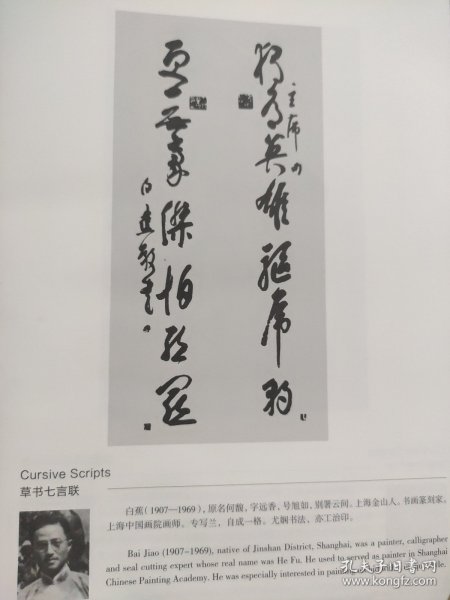 獨有英雄驅虎豹
主席句
更無豪傑怕熊羆
白蕉敬書
Cursive Scripts
草书七言联
白蕉（1907—1969），原名何馥，字远香，号旭如，别署云间，上海金山人。书画篆刻家，
上海中国画院画师。专写兰，自成一格。尤娴书法，亦工治印。
Bai Jiao (1907-1969), native of Jinshan District, Shanghai, was a painter, calligrapher
and seal cutting expert whose real name was He Fu. He used to served as painter in Shanghai
Chinese Painting Academy. He was especially interested in
孔夫子旧书网